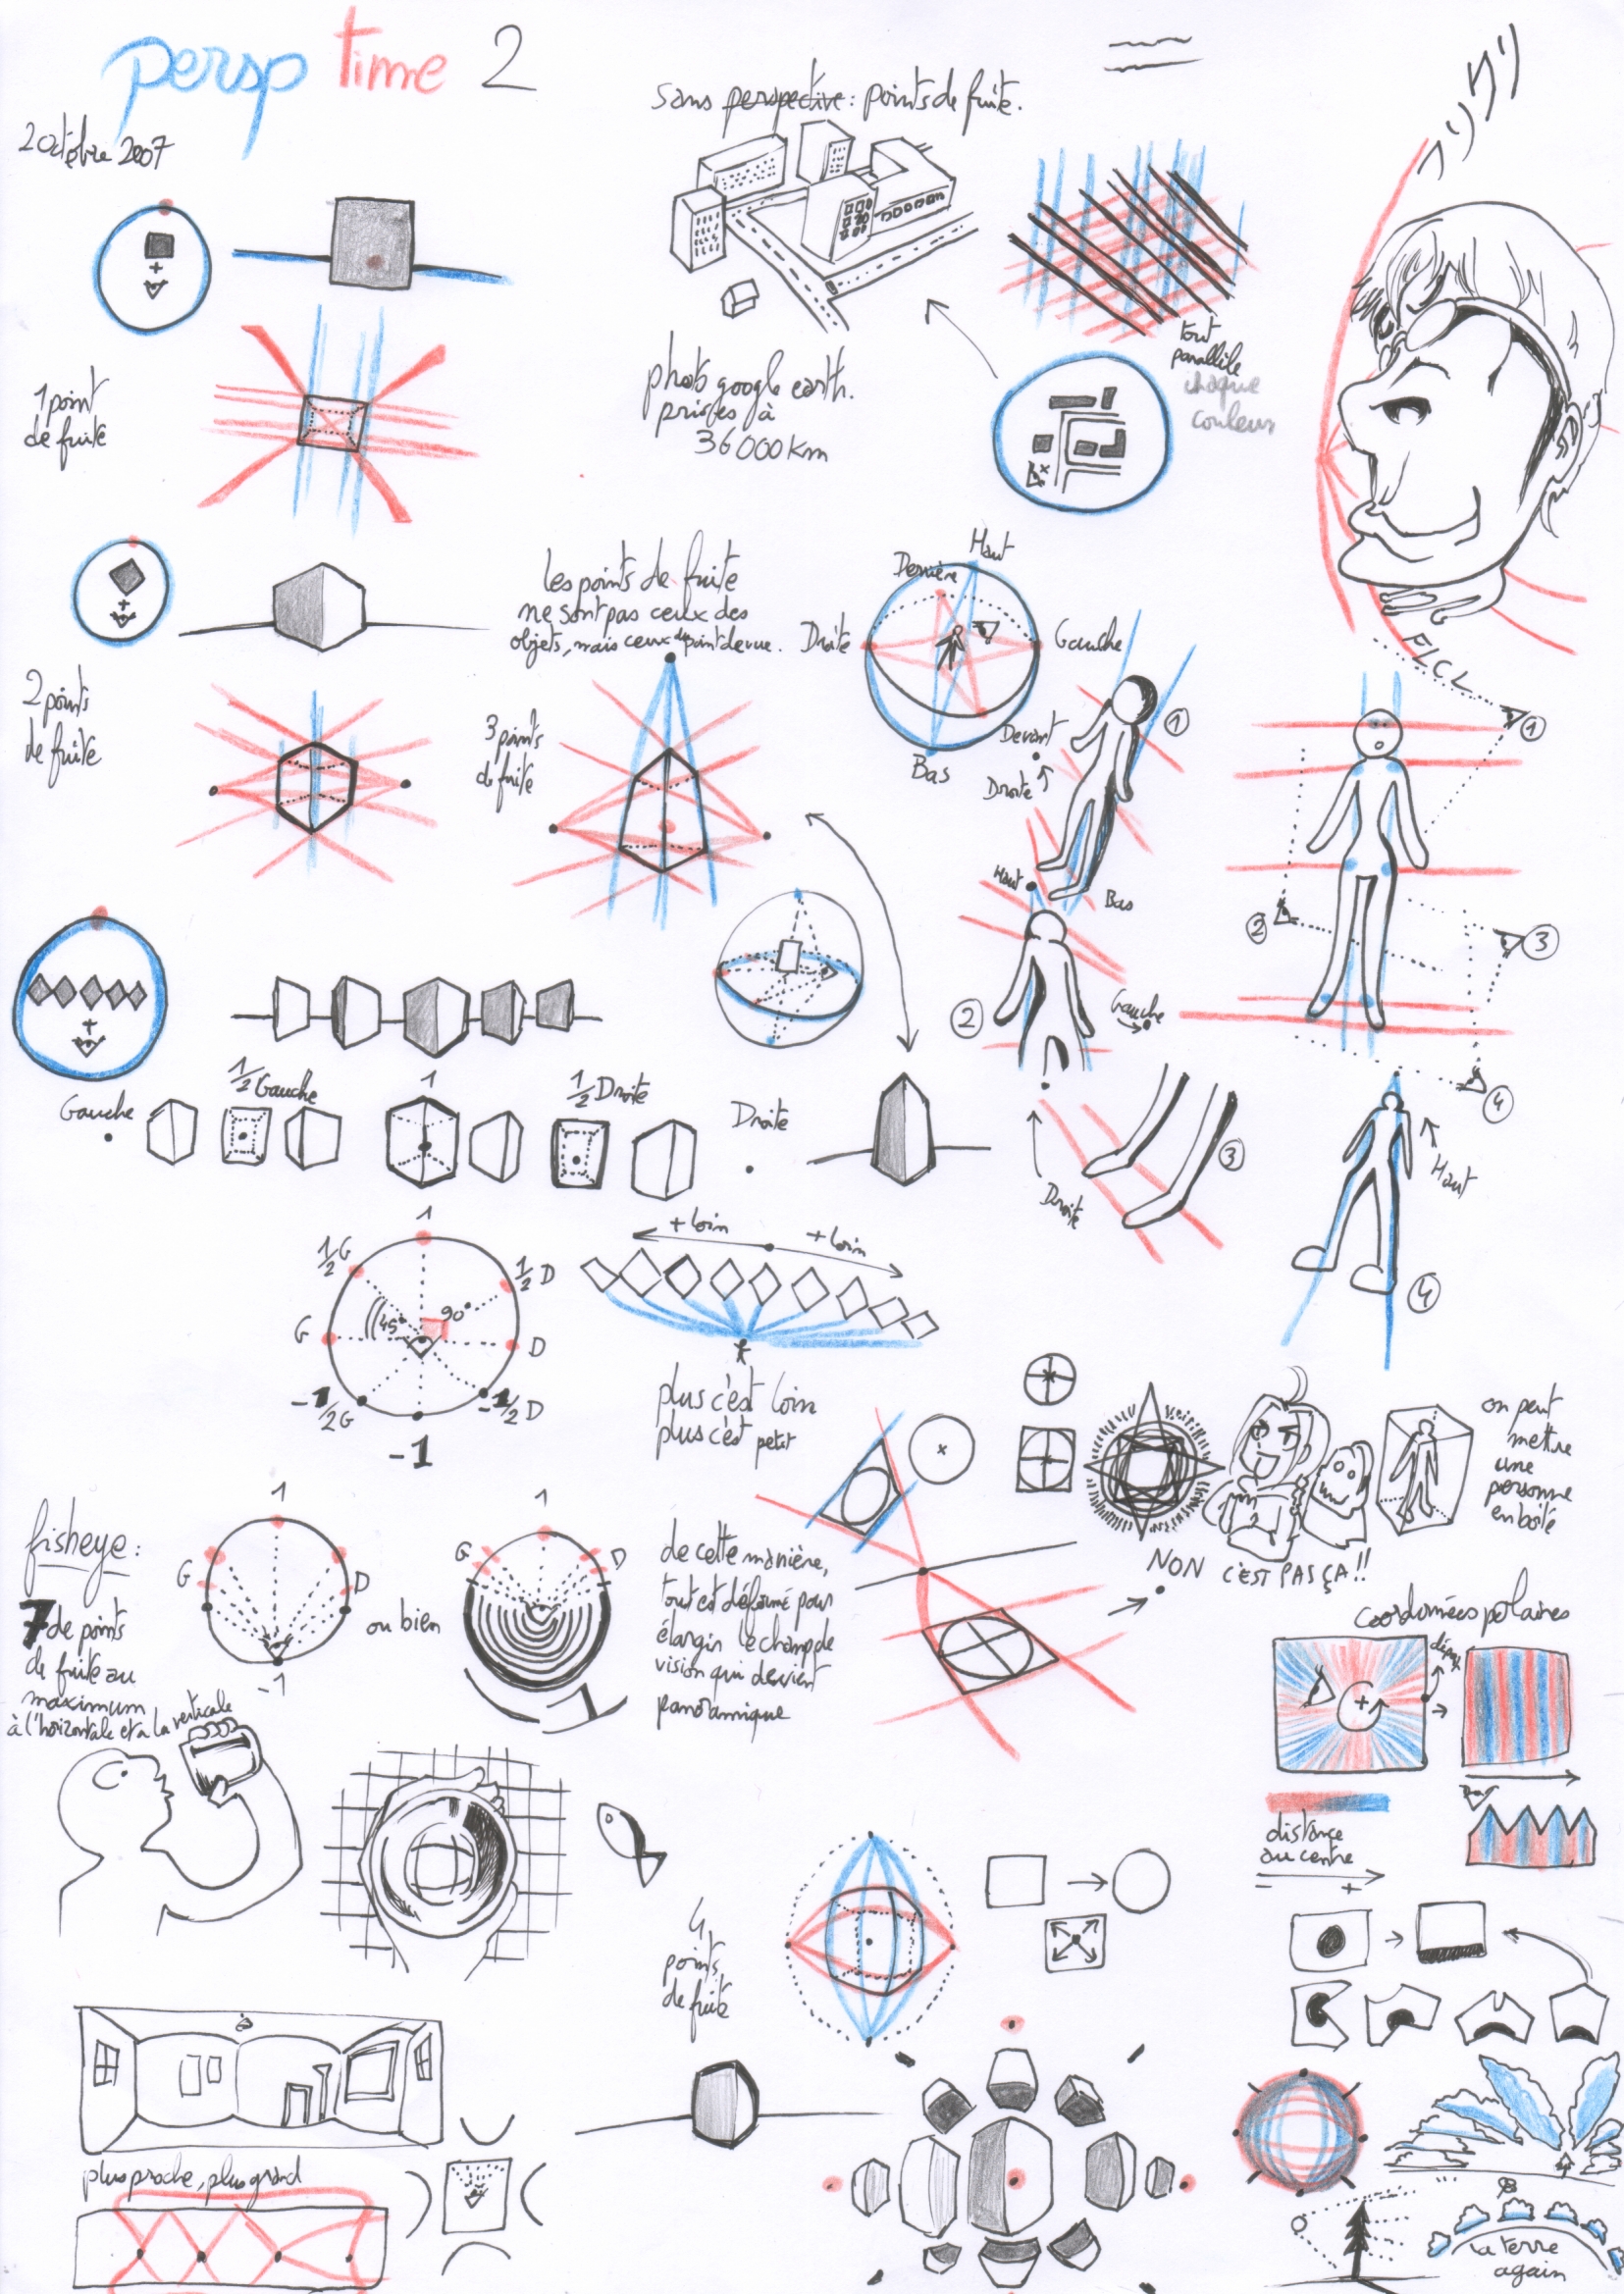 persp time 2
2 octobre 2007
sans perspective : points de fuite.
フリクリ
tout
parallèle
chaque
couleur
photo google earth.
prises à
36000 km
1 point
de fuite
les points de fuite
ne sont pas ceux des
objets, mais ceux du point de vue.
Haut
Derrière
Droite
Gauche
Devant
Bas
FLCL
2 points
de fuite
3 points
de fuite
1
Droite
Haut
Bas
2
Gauche
3
Droite
1
2
3
4
Haut
4
Gauche
1/2 Gauche
1
1/2 Droite
Droite
1
1/2 G
1/2 D
G
45°
90°
D
-1/2 G
-1/2 D
-1
+ loin
+ loin
plus c'est loin
plus c'est petit
on peut
mettre
une
personne
en boîte
NON C'EST PAS ÇA !!
fisheye :
7 de points
de fuite au
maximum
à l'horizontale et à la verticale
1
G
D
-1
ou bien
1
G
D
de cette manière,
tout est déformé pour
élargir le champ de
vision qui devient
panoramique
coordonnées polaires
distance
au centre
- +
4
points
de fuite
plus proche, plus grand
La terre
again